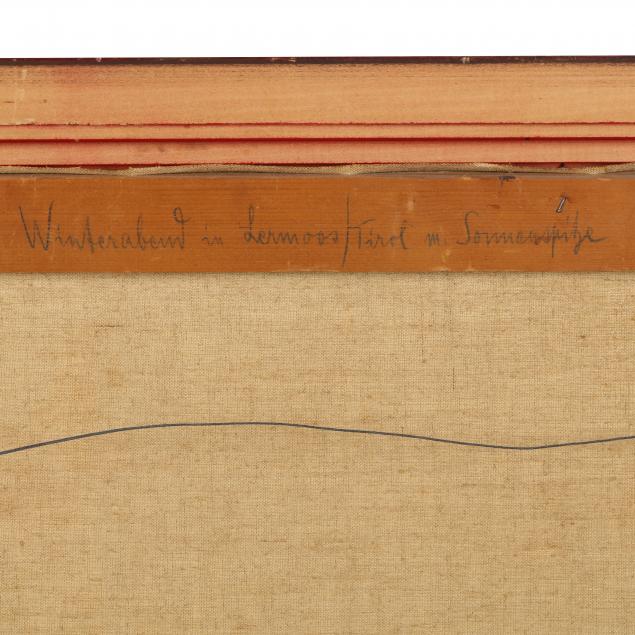 Winterabend in Lermoos/Tirol m. Sonnenspitze